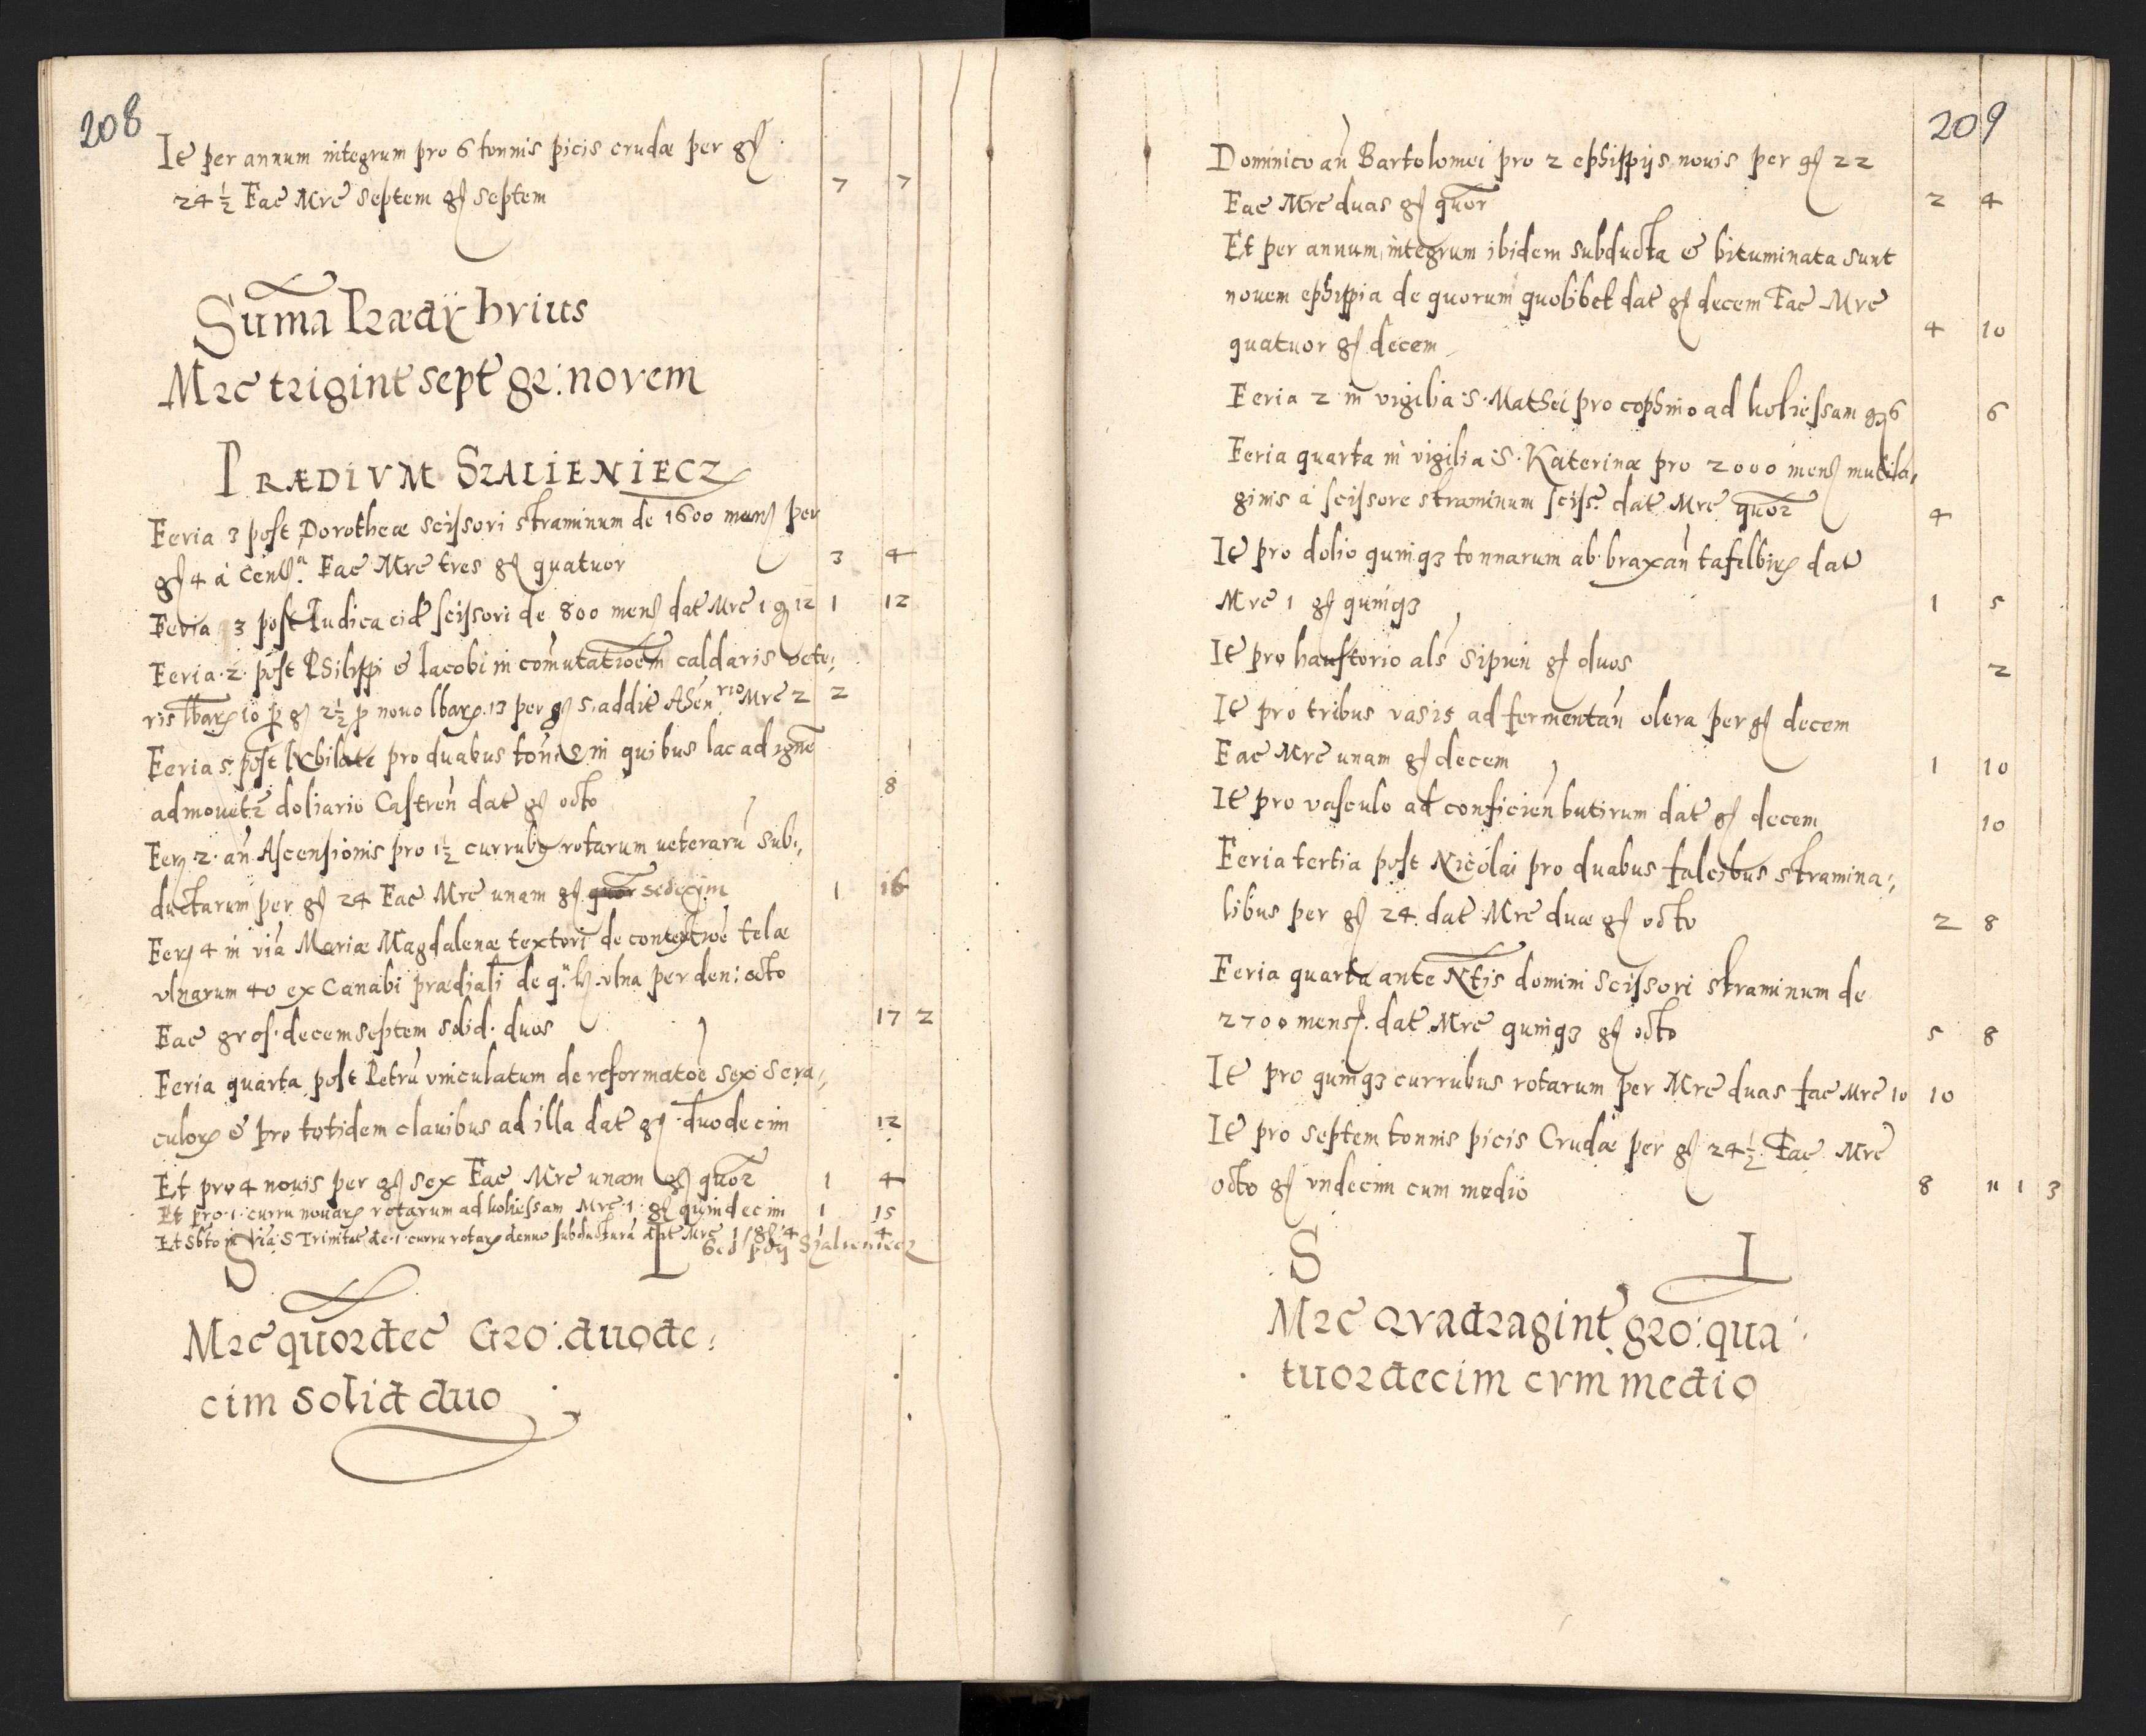 208
Itē per annum integrum pro 6 tonnis picis crudæ per gß
24 ½ Fac Mrc septem gß septem 7 7
Sum̄a Prædÿ hvius
Mrc trigint sept gr: novem
PRÆDIVM SZALIENIECZ
Feria 3 post Dorotheæ scissori straminum de 1600 mens per
gß 4 à Cent.ª Fac Mrc tres gß quatuor 3 4
Feria 3 post Iudica eid scissori de 800 mens dat Mrc 1 g 12 1 12
Feria 2 post Philippi & Iacobi in com̄utationem caldaris vete,
ris lbarꝝ 10 p gß 2½ p novo lbarꝝ 13 per gß 5 addit Ahen.rio Mrc 2 2
Feria 5 post Iubilate pro duabus ton̄is in quibus lac ad igne
admouetr doliario Castren dat gß octo 8
Fer 2 an Ascensionis pro 1½ currubq rotarum ueterarū sub,
ductarum per gß 24 Fac Mrc unam gß quor sedecim 1 16
Fer 4 in via Mariæ Magdalenæ textori de contextioē telæ
vlnarum 40 ex Canabi prædiali de q. lz vlna per den: octo
Fac gros. decem septem solid. duos 17 2
Feria quarta post Petrū vinculatum de reformatoē sex sera,
culorꝝ & pro totidem clauibus ad illa dat gß duodecim 12
Et pro 4 nouis per gß sex Fac Mrc unam gß quor 1 4
Et pro 1 curru nouarꝝ rotarum ad koliessam Mrc 1 gß quindecim 1 15
Et Sbto in via S Trinitat de 1 curru rotarꝝ denuo subductura dat Mrc 1 gß 4 4
S L pdij Szalieniecz
Mrc quordec Gro: duode,
cim solid duo
209
Dominico an Bartolomei pro 2 ephippijs nouis per gß 22
Fac Mrc duas gß quor 2 4
Et per annum integrum ibidem subducta & bituminata sunt
nouem ephippia de quorum quolibet dat gß decem Fac Mrc
quatuor gß decem 4 10
Feria 2 in vigilia S. Mathei pro cophino ad koliessam g 6 6
Feria quarta in vigilia S. Katerinæ pro 2000 mens mutila,
ginis à scissore straminum sciss. dat Mrc quor 4
Itē pro dolio quinqʒ tonnarum ab braxan tafelbirꝝ dat
Mrc 1 gß quinqʒ 1 5
Itē pro haustorio als Sipien gß duos 2
Itē pro tribus vasis ad fermentan olera per gß decem
Fac Mrc unam gß decem 1 10
Itē pro vasculo ad conficien butirum dat gß decem 10
Feria tertia post Nicolai pro duabus falcibus stramina,
libus per gß 24 dat Mrc duæ gß octo 2 8
Feria quarta ante Ntis domini scissori straminum de
2700 mens. dat Mrc quinqʒ gß octo 5 8
Itē pro quinqʒ currubus rotarum per Mrc duas fac Mrc 10 10
Itē pro septem tonnis picis Crudæ per gß 24½ Fac Mrc
octo gß vndecim cum medio 8 11 1 3
S L
Mrc qvadragint gro: qua,
tuordecim cvm medio